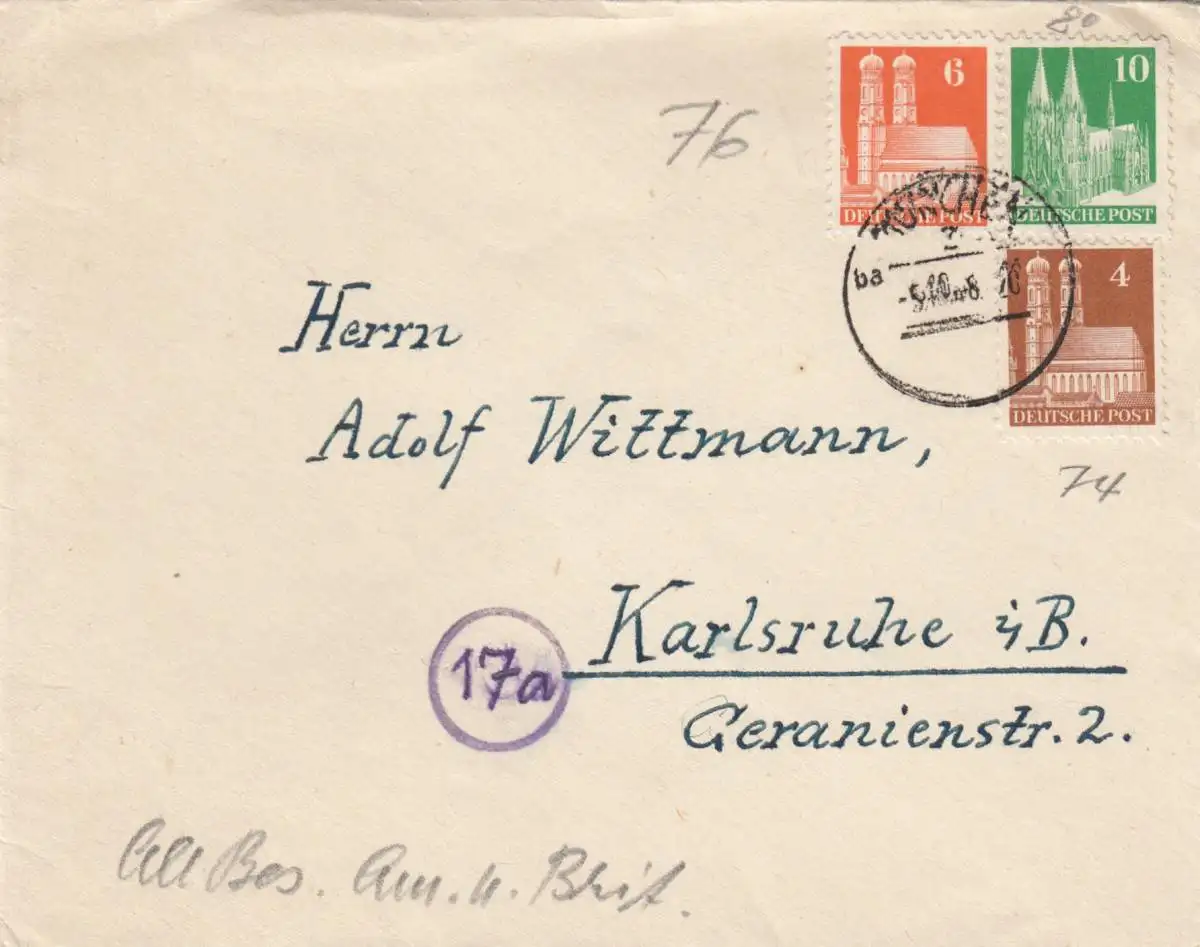 80
76
6
DEUTSCHE POST
10
DEUTSCHE POST
MÜNCHEN
ba
-5.10.48.
4
DEUTSCHE POST
74
Herrn
Adolf Wittmann,
Karlsruhe i/B.
17a
Geranienstr. 2.
All Bes. Am. u. Brit.